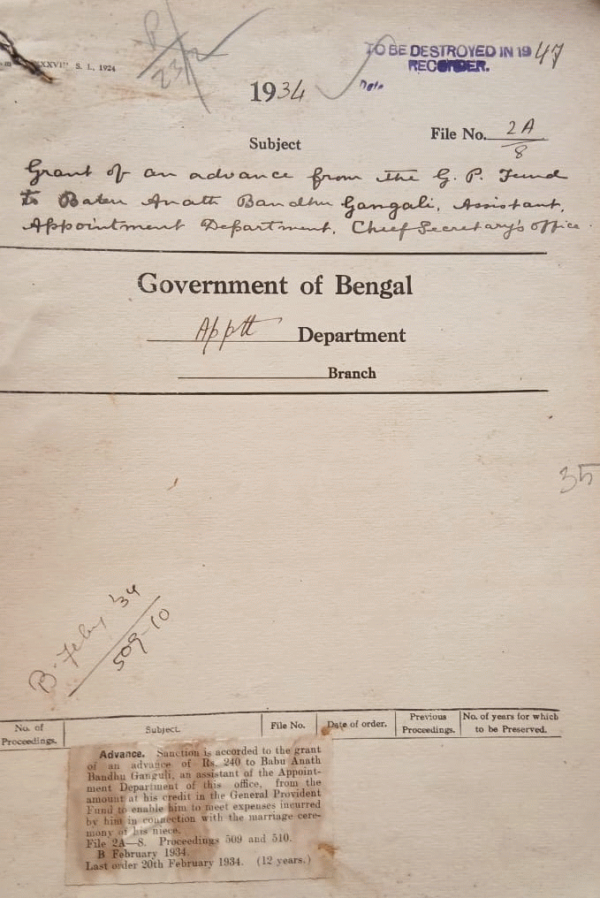 XXVI" S. L., 1924
TO BE DESTROYED IN 1947
RECORDER.
1934
File No. 2A
8
Subject
Grant of an advance from the G. P. Fund
to Babu Anath Bandhu Gangali, Assistant,
Appointment Department, Chief Secretary's office.
Government of Bengal
Apptt Department
Branch
35
B. Feby '34
509-10
No. of Proceedings.
Subject.
File No.
Date of order.
Previous Proceedings.
No. of years for which to be Preserved.
Advance. Sanction is accorded to the grant
of an advance of Rs. 240 to Babu Anath
Bandhu Ganguli, an assistant of the Appoint-
ment Department of this office, from the
amount at his credit in the General Provident
Fund to enable him to meet expenses incurred
by him in connection with the marriage cere-
mony of his niece.
File 2A—8. Proceedings 509 and 510.
B February 1934.
Last order 20th February 1934. (12 years.)